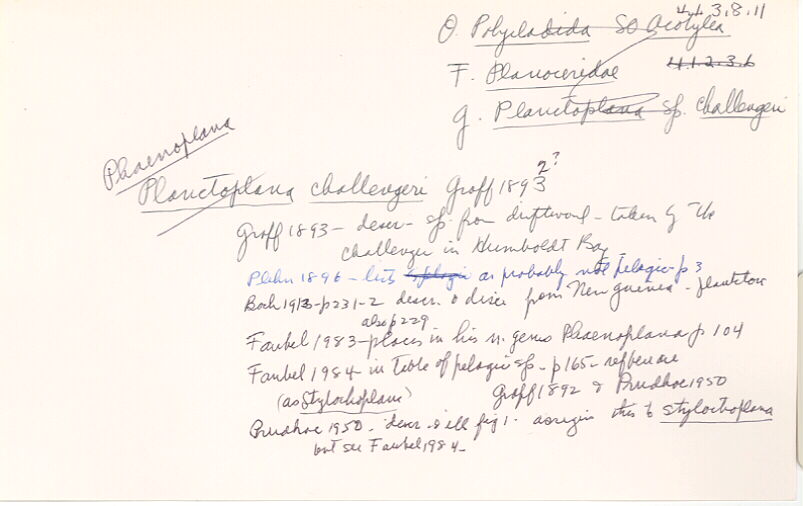 4.1.3.8.11
O. Polycladida SO Acotylea
F. Planoceridae 4.1.2.3.6
g. Planctoplana sp. challengeri
Phaenoplana
Planctoplana challengeri Graff 1893 2?
Graff 1893 - descr - sp. from driftwood - taken by the
Challenger in Humboldt Bay
Plehn 1896 - lists as probably not pelagic - p 3
Bock 1913 - p231-2 descr. & disc from New Guinea - plankton
also p229
Faubel 1983 - places in his n. genus Phaenoplana p 104
Faubel 1984 - in Table of pelagic sp - p165 - reference
(as Stylochoplana) Graff 1892 & Prudhoe 1950
Prudhoe 1950 - descr. & ill fig 1. assigns this to Stylochoplana
but see Faubel 1984 -